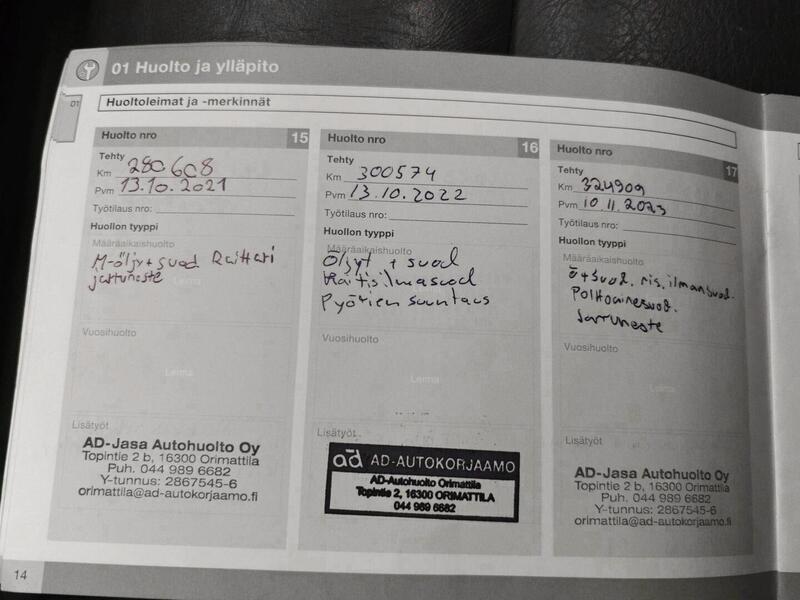 01 Huolto ja ylläpito
01
Huoltoleimat ja -merkinnät
Huolto nro 15
Tehty
Km 280608
Pvm 13.10.2021
Työtilaus nro:
Huollon tyyppi
Määräaikaishuolto
M-öljy + suod. Raittari
jarruneste
Leima
Vuosihuolto
Leima
Lisätyöt
AD-Jasa Autohuolto Oy
Topintie 2 b, 16300 Orimattila
Puh. 044 989 6682
Y-tunnus: 2867545-6
orimattila@ad-autokorjaamo.fi
Huolto nro 16
Tehty
Km 300574
Pvm 13.10.2022
Työtilaus nro:
Huollon tyyppi
Määräaikaishuolto
Öljyt + suod
Raitisilmasuod
Pyörien suuntaus
Vuosihuolto
Leima
Lisätyöt
ad AD-AUTOKORJAAMO
AD-Autohuolto Orimattila
Topintie 2, 16300 ORIMATTILA
044 989 6682
Huolto nro 17
Tehty
Km 324909
Pvm 10.11.2023
Työtilaus nro:
Huollon tyyppi
Määräaikaishuolto
ö+suod. ris.ilmansuod.
Polttoainesuod.
Jarruneste
Vuosihuolto
Leima
Lisätyöt
AD-Jasa Autohuolto Oy
Topintie 2 b, 16300 Orimattila
Puh. 044 989 6682
Y-tunnus: 2867545-6
orimattila@ad-autokorjaamo.fi
14